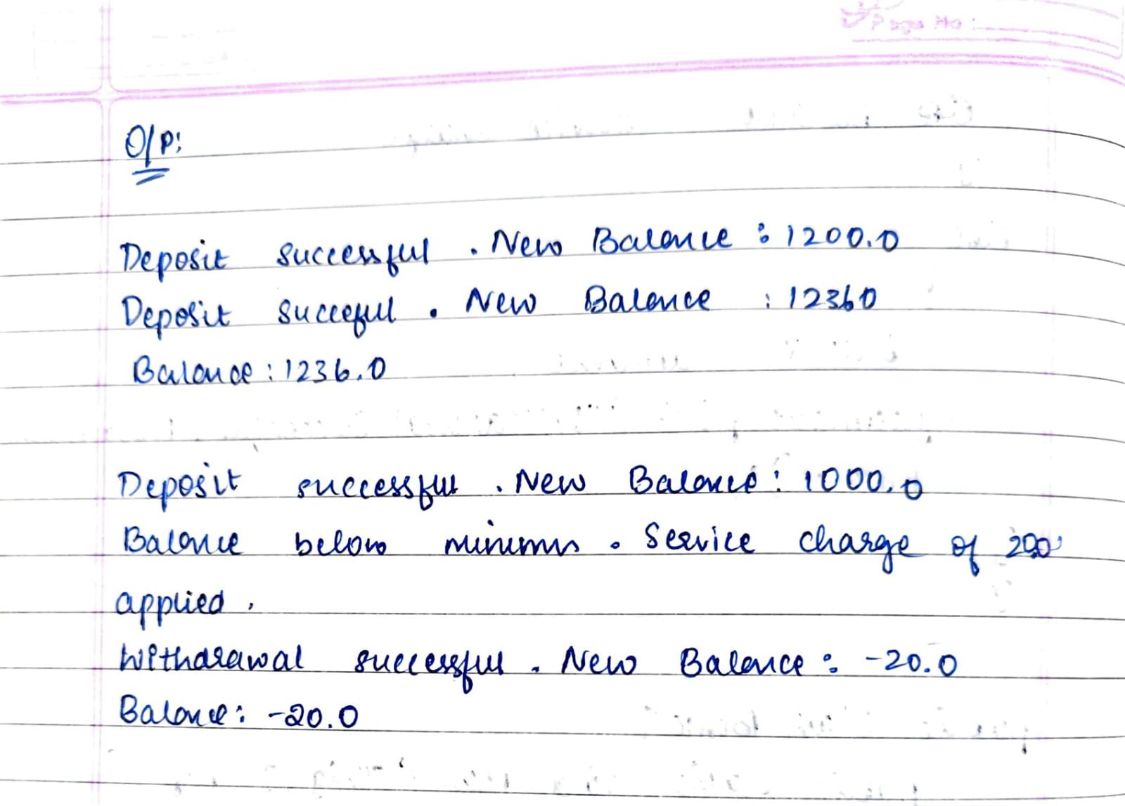 Page No:
O/P:
Deposit successful . New Balance : 1200.0
Deposit succeful . New Balance : 12360
Balance : 1236.0
Deposit successful . New Balance : 1000.0
Balance below minimum . Service charge of 200
applied .
Withdrawal successful . New Balance : -20.0
Balance : -20.0